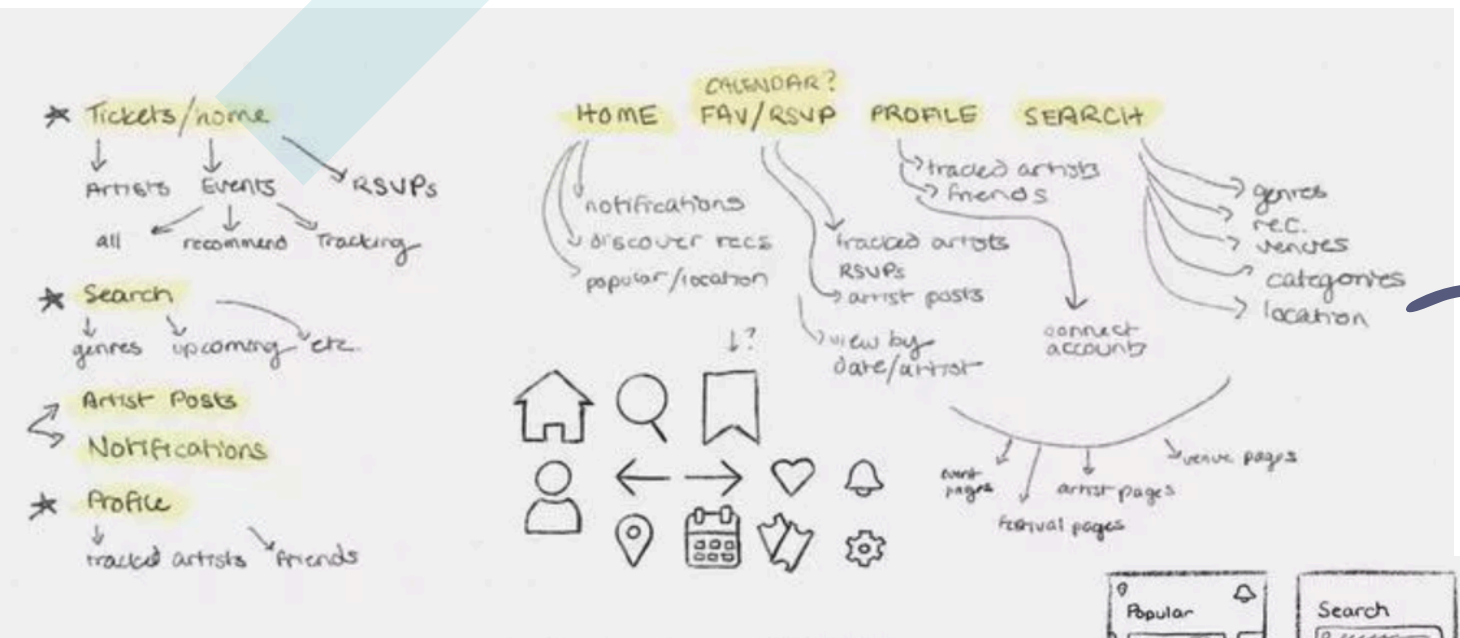 Tickets/home
Artists Events RSVPs
all recommend Tracking
Search
genres upcoming etc.
Artist Posts
Notifications
Profile
tracked artists friends
CALENDAR?
HOME FAV/RSVP PROFILE SEARCH
notifications
discover recs
popular/location
tracked artists
RSVPs
artist posts
view by
date/artist
tracked artists
friends
connect
accounts
genres
rec.
venues
categories
location
?
event
pages
festival pages
artist pages
venue pages
Popular
Search